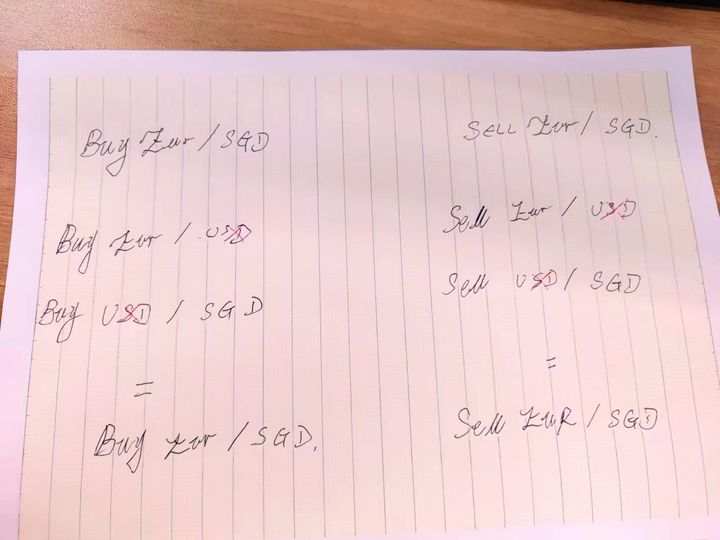 Buy Eur / SGD
Buy Eur / USD
Buy USD / SGD
=
Buy Eur / SGD.
SELL Eur / SGD.
Sell Eur / USD
Sell USD / SGD
=
Sell EUR / SGD